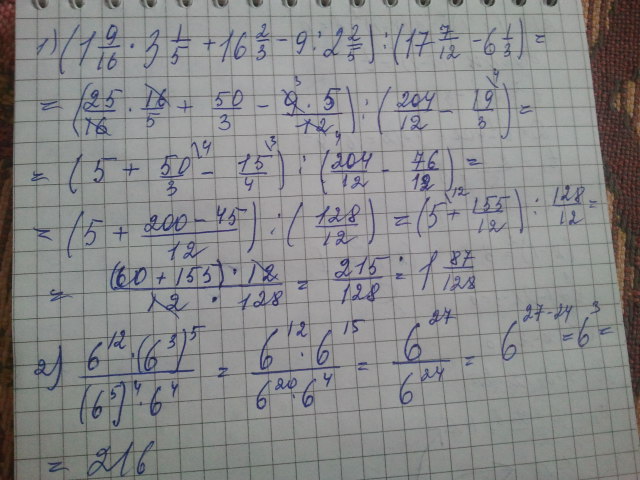 1) (1 9/16 · 3 1/5 + 16 2/3 - 9 : 2 2/5) : (17 7/12 - 6 1/3) =
= (25/16 · 16/5 + 50/3 - 9 · 5/12) : (204/12 - 19/3) =
= (5 + 50/3 - 15/4) : (204/12 - 76/12) =
= (5 + (200 - 45)/12) : (128/12) = (5 + 155/12) : 128/12 =
= ((60 + 155) · 12)/(12 · 128) = 215/128 = 1 87/128
2) (6^12 · (6^3)^5)/((6^5)^4 · 6^4) = (6^12 · 6^15)/(6^20 · 6^4) = 6^27/6^24 = 6^(27-24) = 6^3 =
= 216